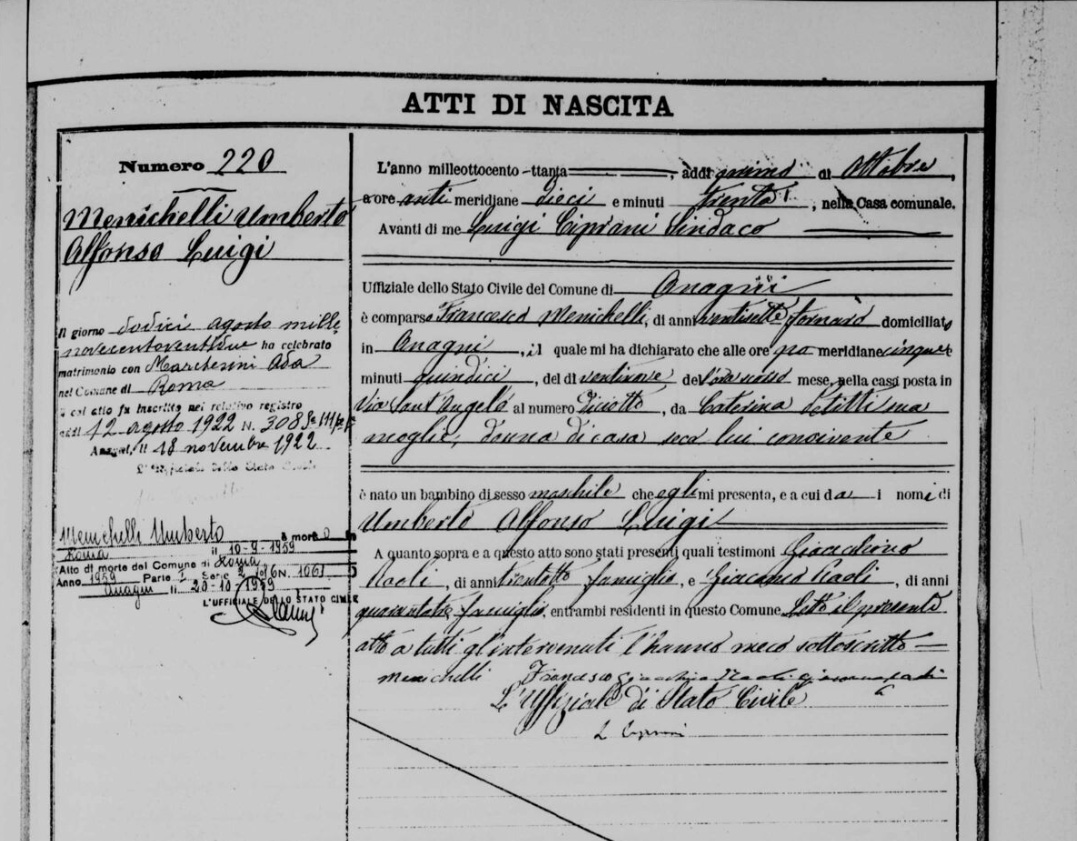 ATTI DI NASCITA
Numero 220
Menichelli Umberto
Alfonso Luigi
Il giorno dodici agosto mille
novecentoventidue ha celebrato
matrimonio con Ada
nel Comune di Roma
il cui atto fu inscritto nel relativo registro
addì 12 agosto 1922 N. 308
Anagni, li 18 novembre 1922
L'Uffiziale dello Stato Civile
Menichelli Umberto è morto in
Roma il 10-9-1959
Atto di morte del Comune di Roma
Anno 1959 Parte Serie N. 1061
Anagni li 20-10-1959
L'UFFICIALE DELLO STATO CIVILE
L'anno milleottocento -ttanta, addì primo di Ottobre,
a ore anti meridiane dieci e minuti trenta, nella Casa comunale.
Avanti di me Luigi Ciprani Sindaco
Uffiziale dello Stato Civile del Comune di Anagni
è comparso Francesco Menichelli, di anni ventisette fornaro domiciliato
in Anagni, il quale mi ha dichiarato che alle ore po meridiane cinque e
minuti quindici, del dì ventinove, del mese, nella casa posta in
Via Sant'Angelo al numero diciotto, da Caterina sua
moglie, donna di casa seco lui convivente
è nato un bambino di sesso maschile che egli mi presenta, e a cui da i nomi di
Umberto Alfonso Luigi
A quanto sopra e a questo atto sono stati presenti quali testimoni Gioacchino
, di anni trentotto famiglio, e Giacomo, di anni
famiglio, entrambi residenti in questo Comune. Letto il presente
atto a tutti gl'intervenuti l'hanno meco sottoscritto
Menichelli Francesco
L'Uffiziale di Stato Civile
L Ciprani